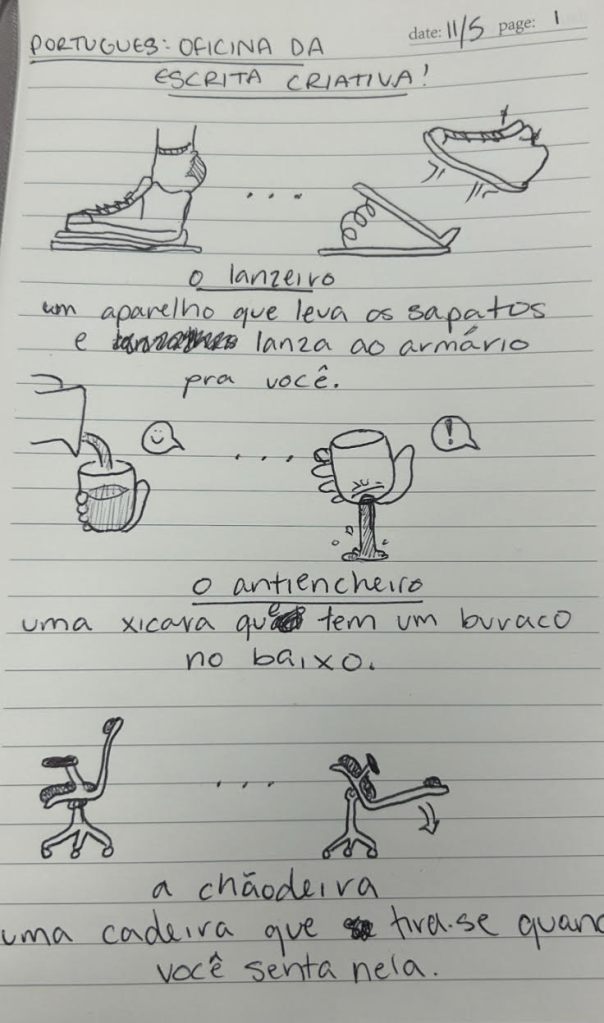 date: 11/5 page: 1
PORTUGUES: OFICINA DA
ESCRITA CRIATIVA!
o lanzeiro
um aparelho que leva os sapatos
e lanza ao armário
pra você.
!
o antiencheiro
uma xicara que tem um buraco
no baixo.
a chãodeira
uma cadeira que tira-se quand
você senta nela.